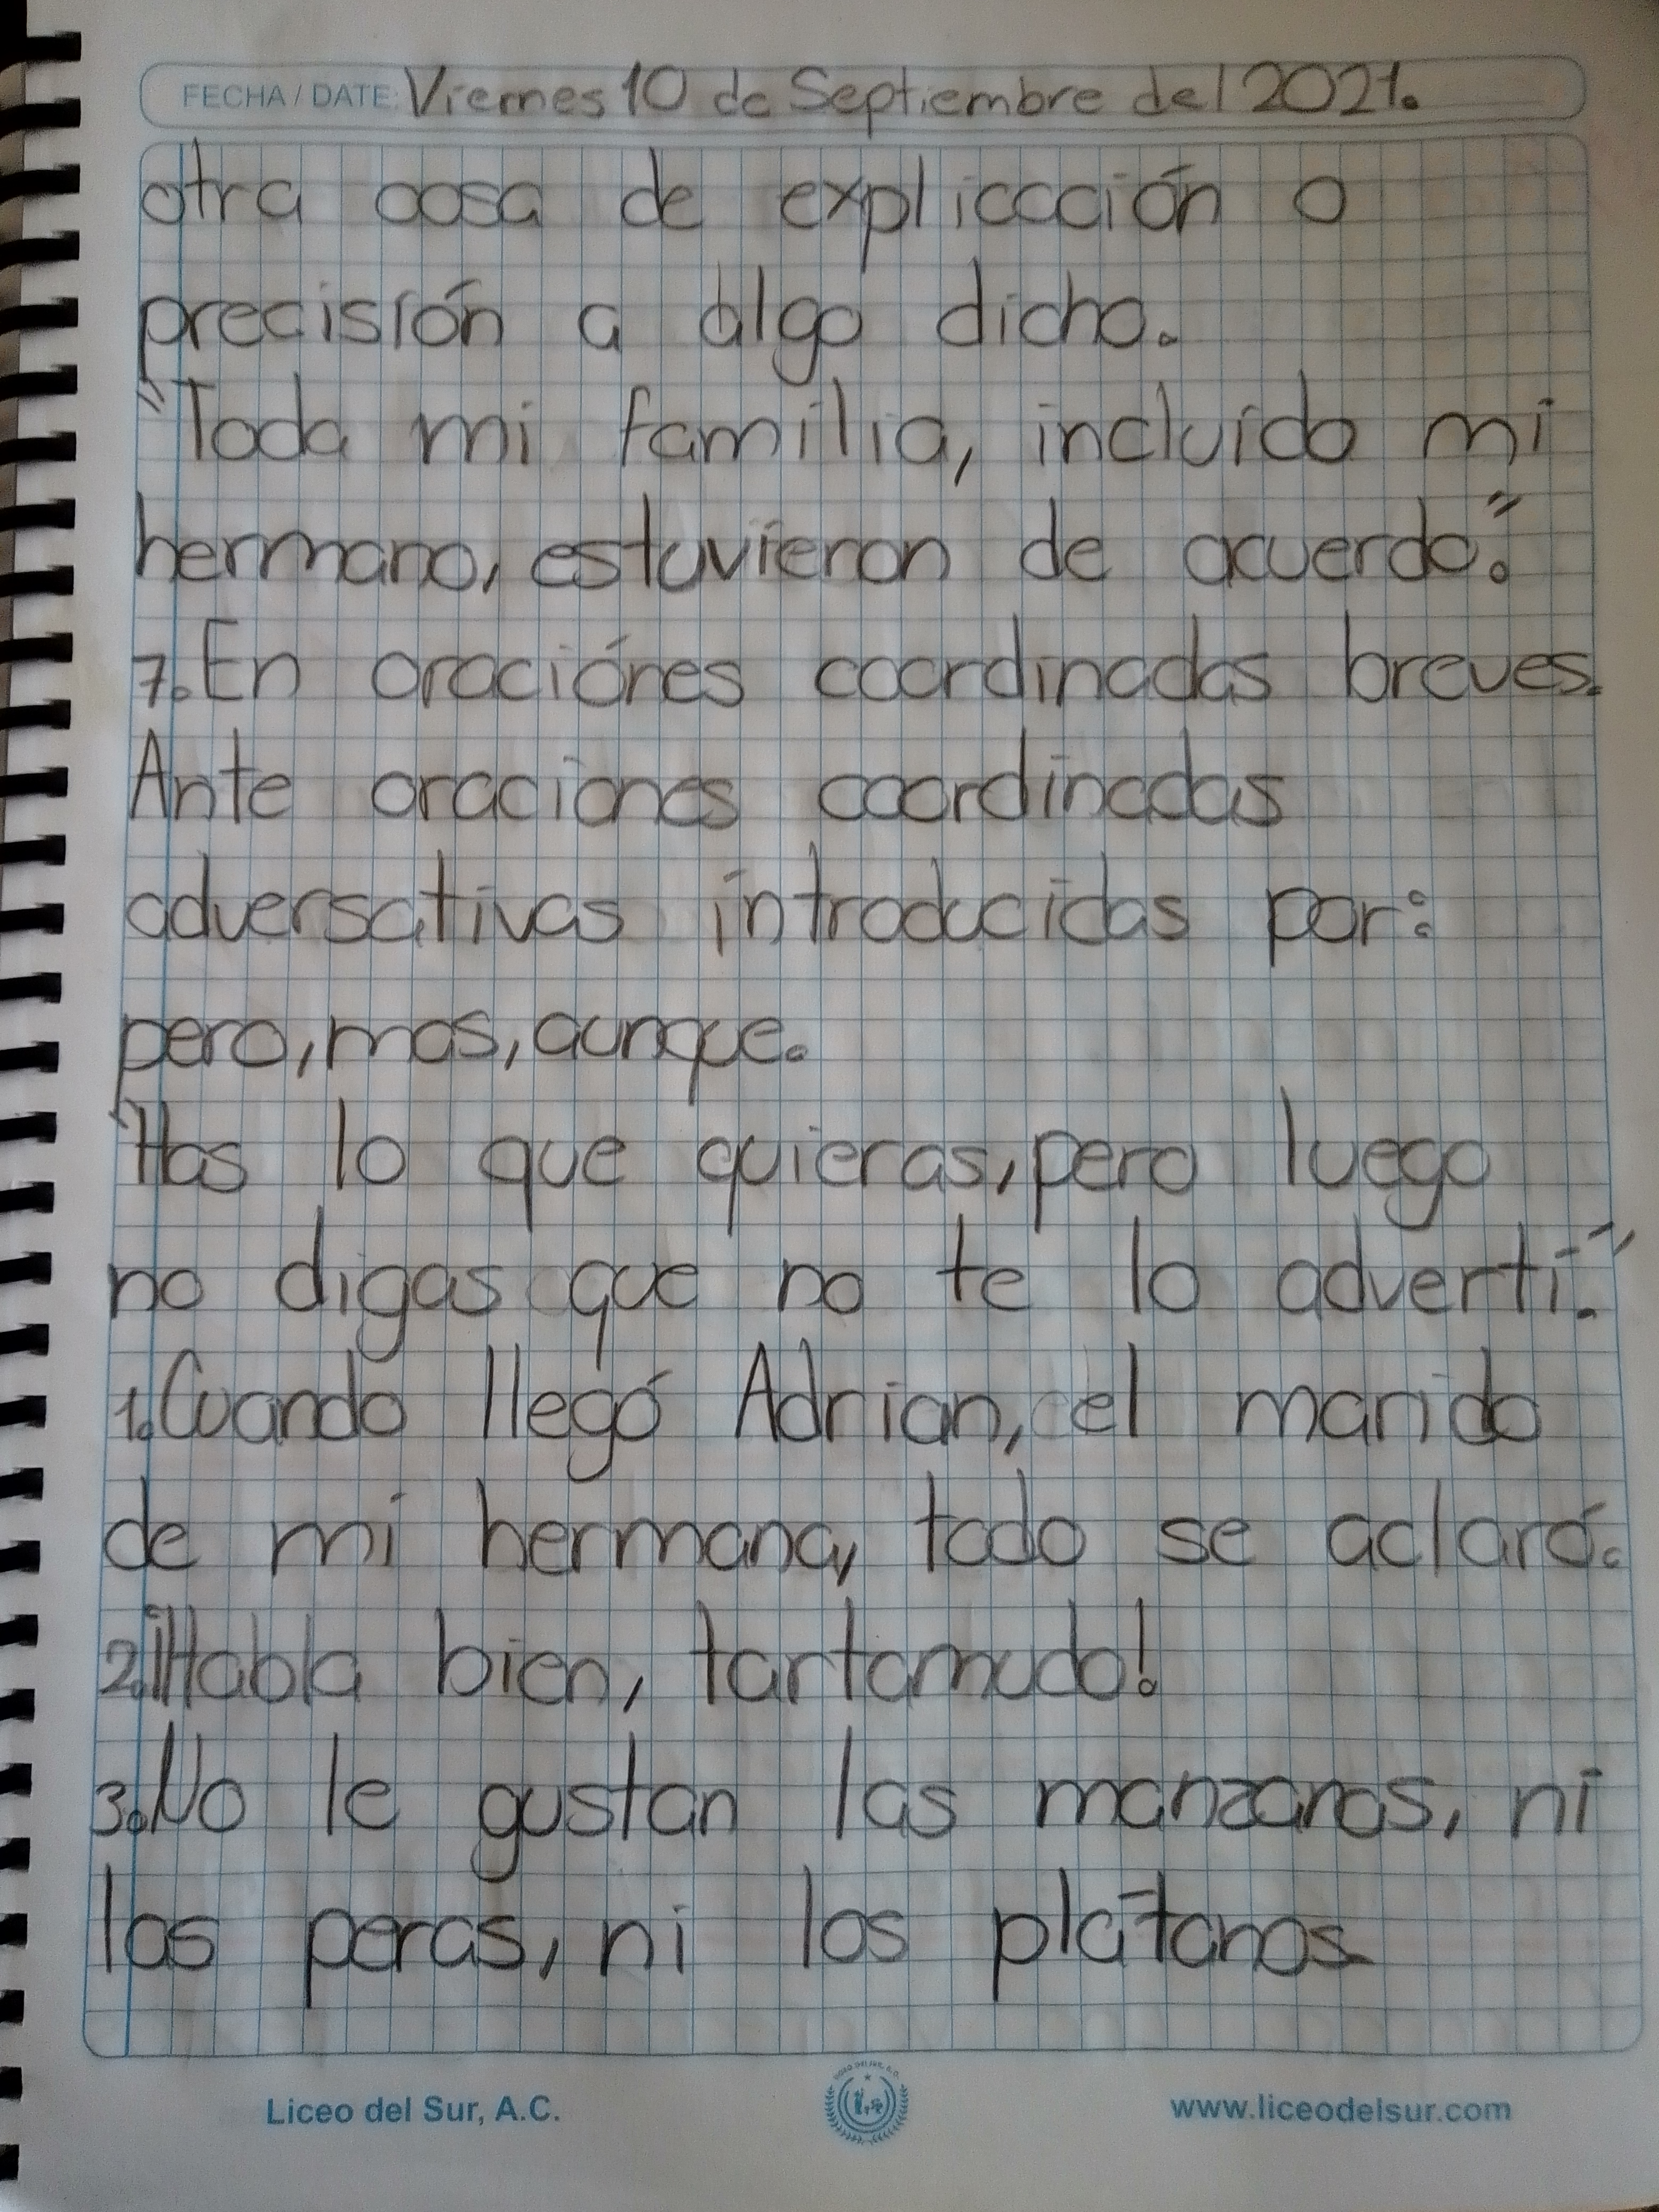 FECHA / DATE: Viernes 10 de Septiembre del 2021.
otra cosa de explicación o
precisión a algo dicho.
"Toda mi familia, incluído mi
hermano, estuvieron de acuerdo."
7. En oraciónes coordinadas breves.
Ante oraciones coordinadas
adversativas introducidas por:
pero, mas, aunque.
"Has lo que quieras, pero luego
no digas que no te lo advertí."
1. Cuando llegó Adrian, el marido
de mi hermana, todo se aclaró.
2. ¡Habla bien, tartamudo!
3. No le gustan las manzanas, ni
las peras, ni los plátanos.
Liceo del Sur, A.C.
www.liceodelsur.com